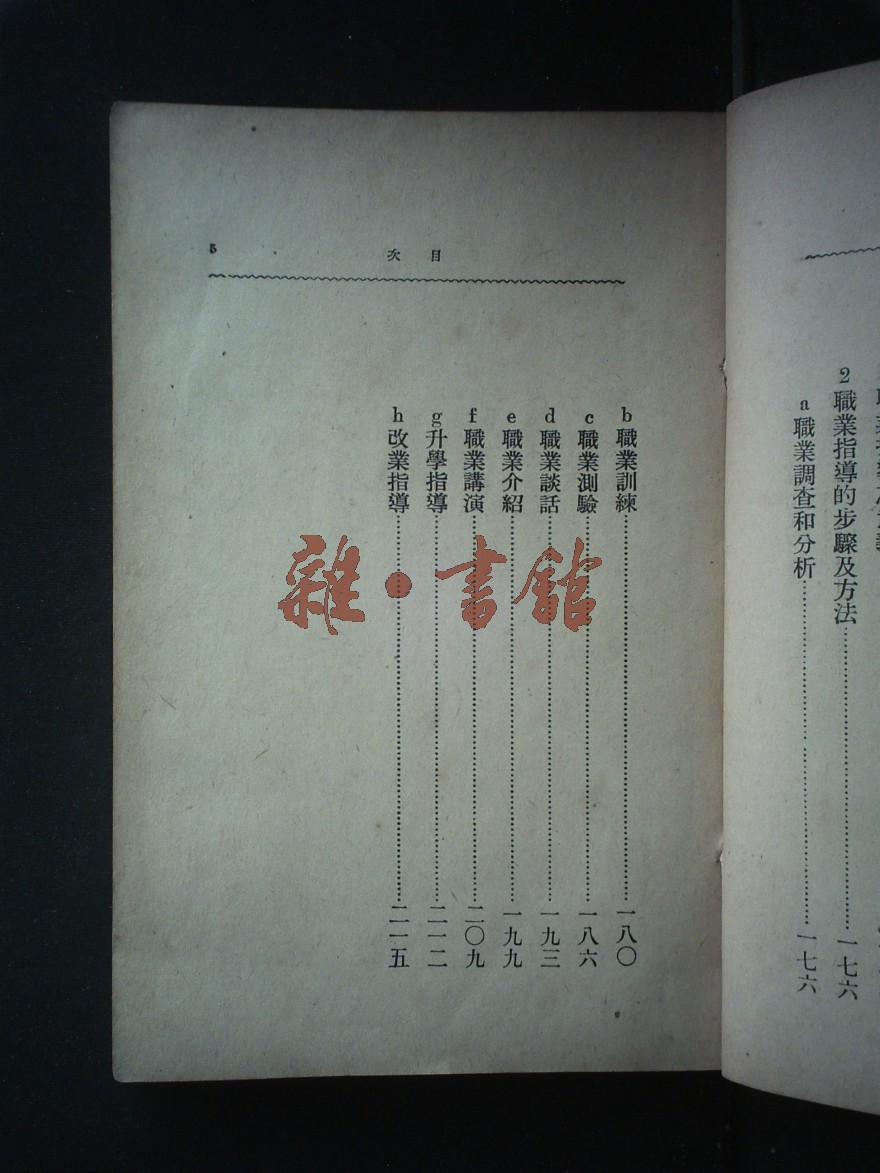 2 職業指導的步驟及方法……一七六
a 職業調查和分析……一七六
目次
5
b 職業訓練……一八〇
c 職業測驗……一八六
d 職業談話……一九三
e 職業介紹……一九九
f 職業講演……二〇九
g 升學指導……二一二
h 改業指導……二一五
雜·書館